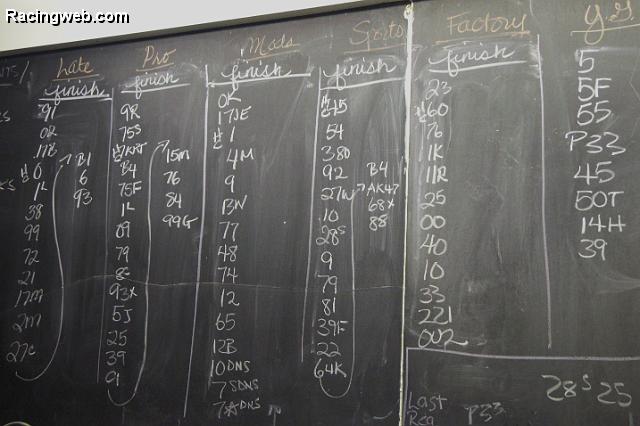 Racingweb.com
Late
finish
91
0R
17B
0
1L
38
99
72
21
17m
2m
27c
B1
6
93
Pro
finish
9R
75S
B4
75F
1L
09
79
93x
5J
25
39
91
15m
76
84
99G
Mods
finish
0K
17JE
1
4M
9
BN
77
48
74
12
65
12B
10 DNS
7 SDNS
7 DNS
Sports
finish
54
38D
92
27W
10
28S
9
79
81
39F
22
64K
B4
AK47
68x
88
Factory
finish
23
60
76
11K
11R
25
00
40
10
33
221
002
5
5F
55
P33
45
50T
14H
39
28S 25
Last P33
Reg